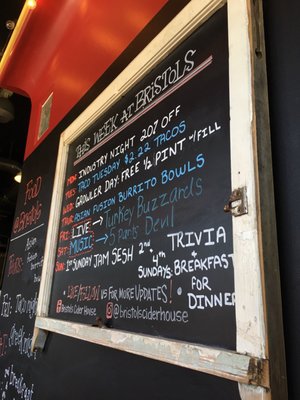 THIS WEEK AT BRISTOLS
MON: INDUSTRY NIGHT 20% OFF
TUES: TACO TUESDAY $2.22 TACOS
WED: GROWLER DAY: FREE ½ PINT w/FILL
ASIAN FUSION BURRITO BOWLS
FRI: LIVE → Turkey Buzzards
SAT: MUSIC → 5 Parts Devil
SUN: 2ND SUNDAY JAM SESH 2nd & 4th SUNDAYS
TRIVIA
& BREAKFAST
FOR
DINNER
US FOR MORE UPDATES!
Bristols Cider House @bristolsciderhouse
FOOD
@BRISTOLS
Asian
Burri
Thurs:
Fri: